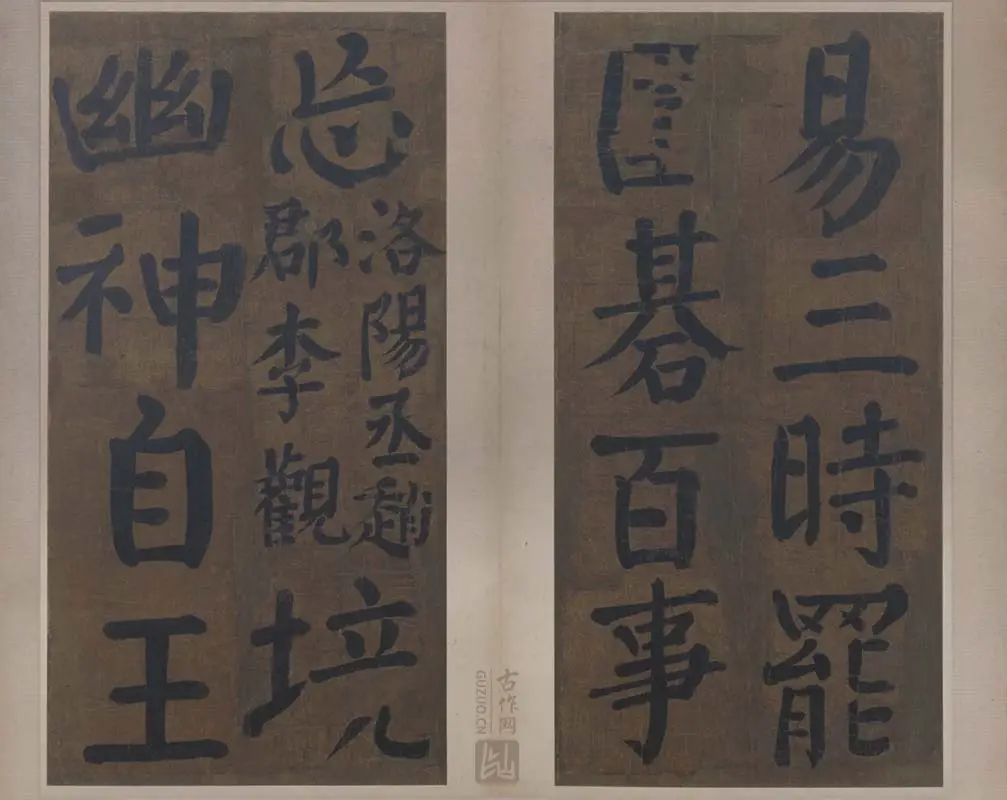 易三時罷
碁百事
忘
洛陽丞趙
郡李觀
境
幽神自王
古作网
GUZUO.CN